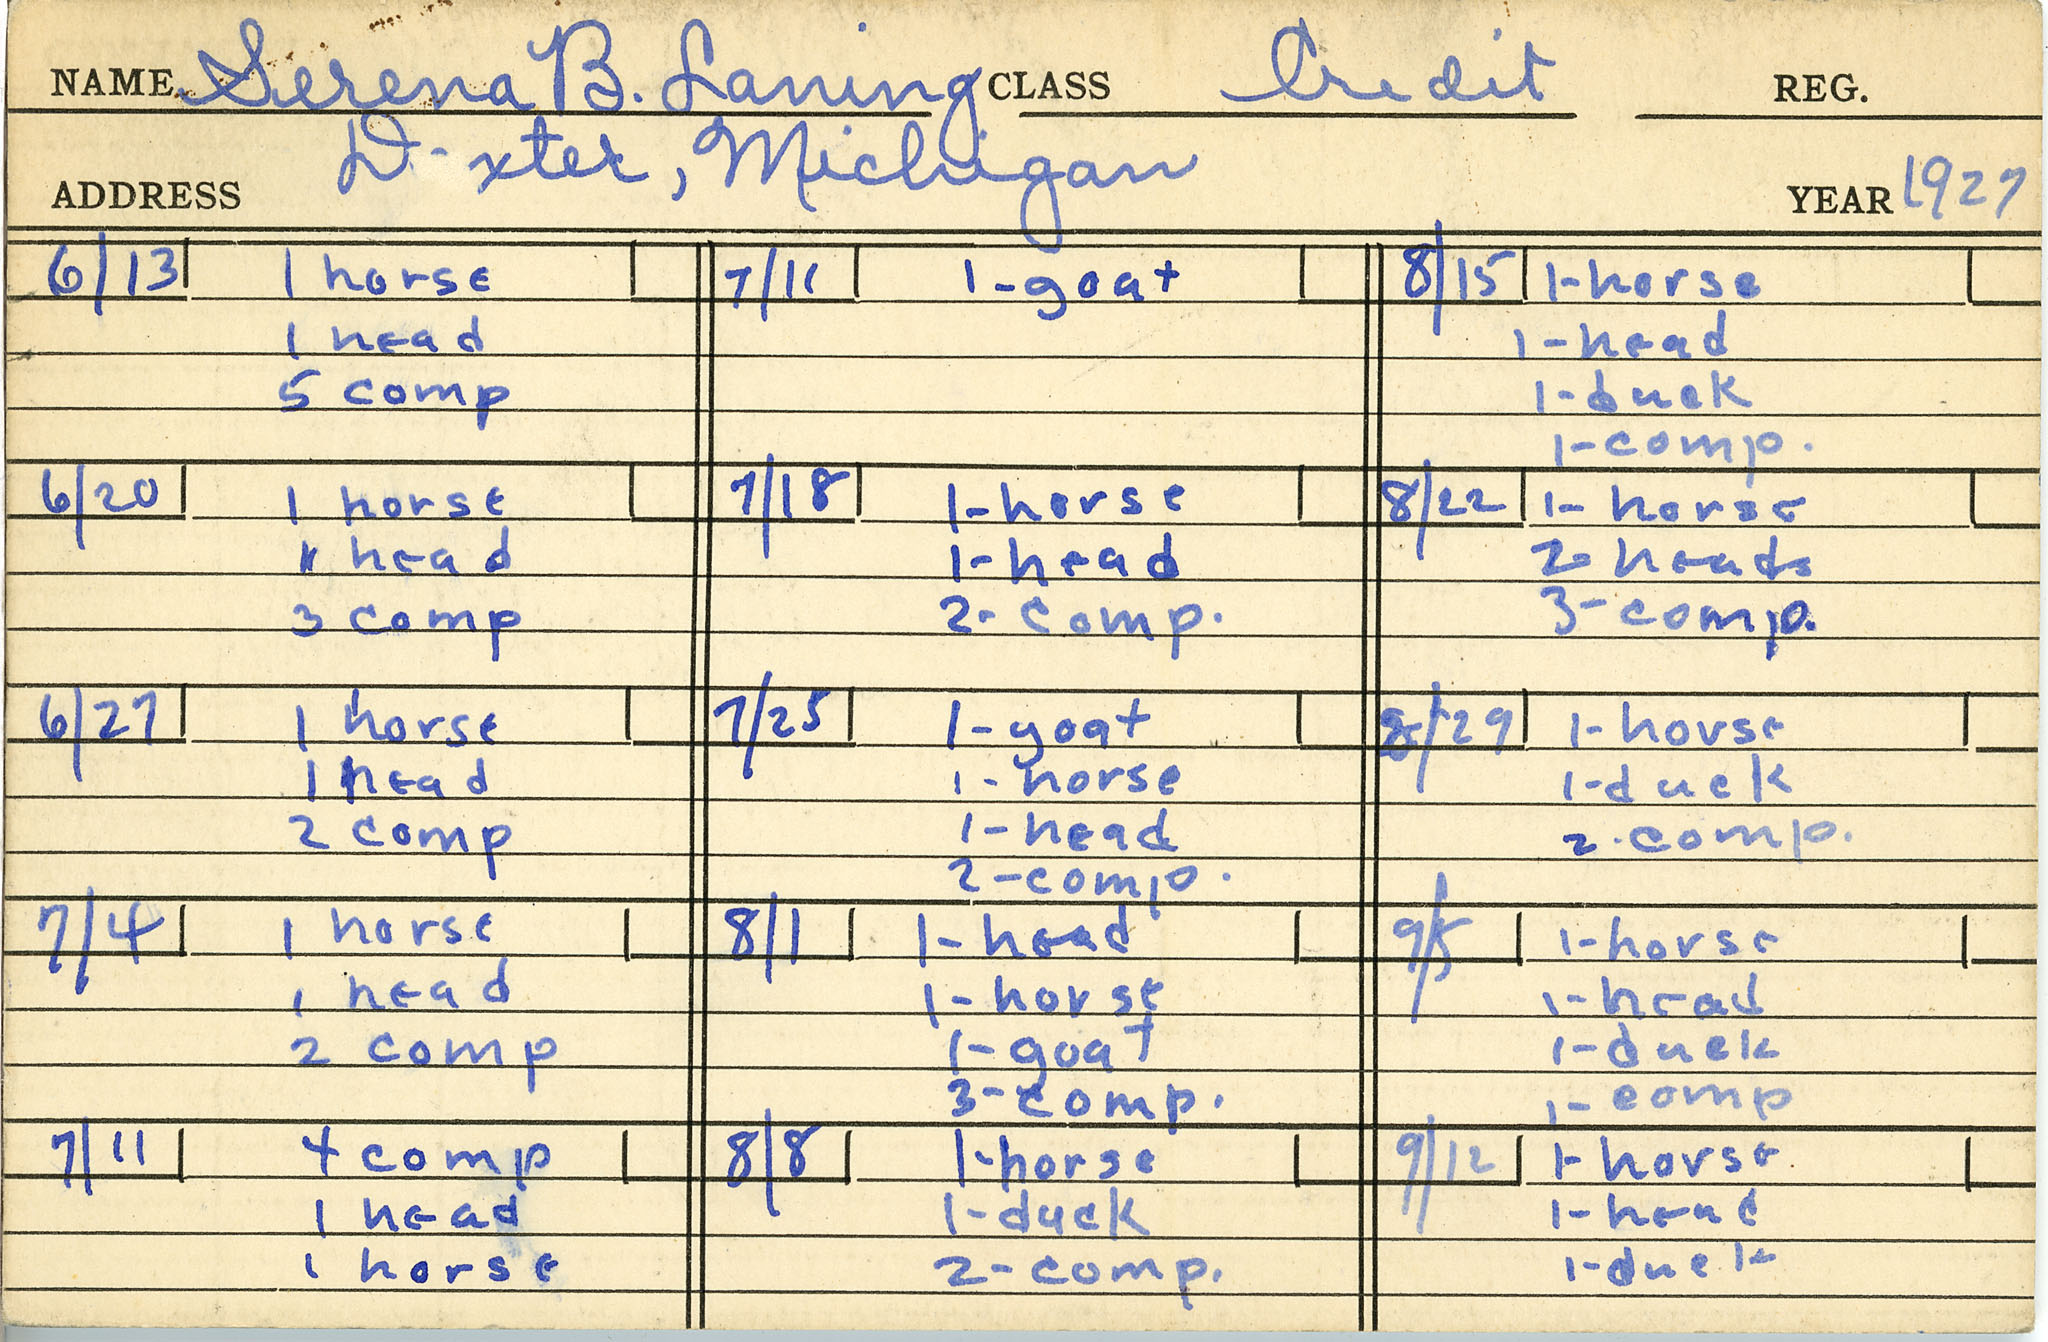 NAME Serena B. Laning CLASS Credit REG.
ADDRESS D-xter, Michigan YEAR 1927
6/13 1 horse
1 head
5 comp
6/20 1 horse
1 head
3 comp
6/27 1 horse
1 head
2 comp
7/4 1 horse
1 head
2 comp
7/11 4 comp
1 head
1 horse
7/11 1-goat
7/18 1-horse
1-head
2-comp.
7/25 1-goat
1-horse
1-head
2-comp.
8/1 1-head
1-horse
1-goat
3-comp.
8/8 1-horse
1-duck
2-comp.
8/15 1-horse
1-head
1-duck
1-comp.
8/22 1-horse
2-heads
3-comp.
8/29 1-horse
1-duck
2-comp.
9/5 1-horse
1-head
1-duck
1-comp
9/12 1-horse
1-head
1-duck